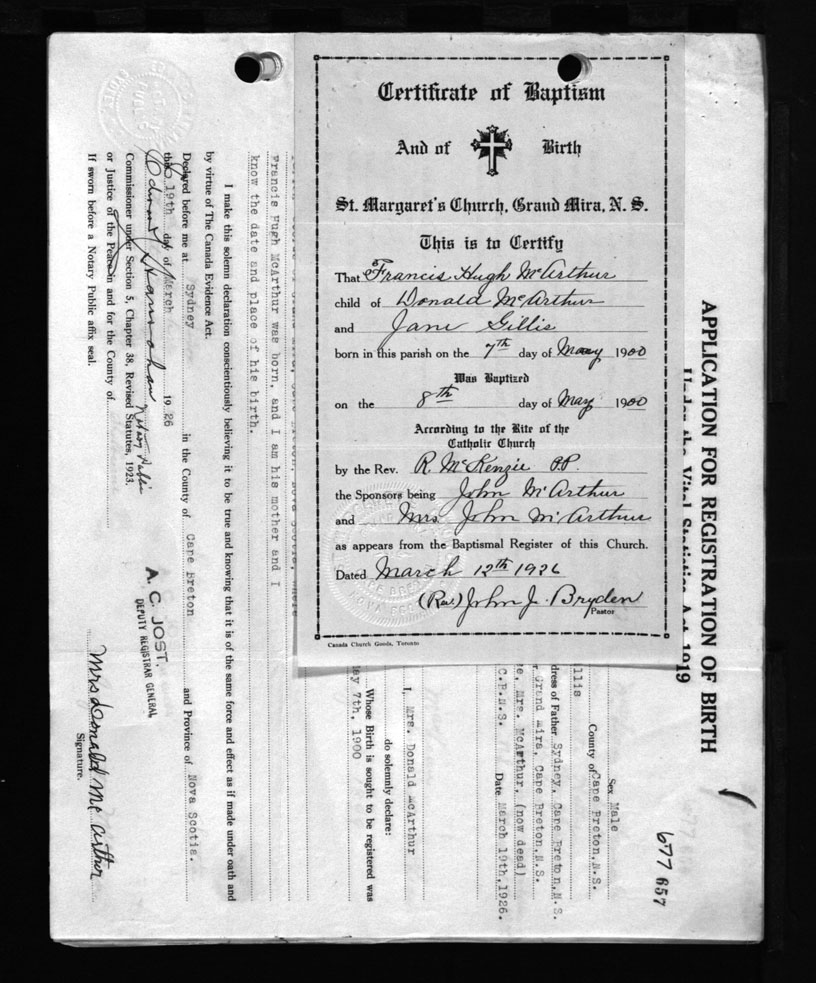 Certificate of Baptism
And of Birth
St. Margaret's Church, Grand Mira, N. S.
This is to Certify
That Francis Hugh McArthur
child of Donald McArthur
and Jane Gillis
born in this parish on the 7th day of May 1900
Was Baptized
on the 8th day of May 1900
According to the Rite of the
Catholic Church
by the Rev. R. McKenzie P.P.
the Sponsors being John McArthur
and Mrs. John McArthur
as appears from the Baptismal Register of this Church.
Dated March 12th 1926
(Rev.) John J. Bryden
Pastor
Canada Church Goods, Toronto
APPLICATION FOR REGISTRATION OF BIRTH
Under the Vital Statistics Act 1919
677 657
Sex Male
County of Cape Breton, N.S.
llis
dress of Father Sydney, Cape Breton, N.S.
Grand Mira, Cape Breton, N.S.
e, Mrs. McArthur, (now dead)
C.B.N.S. Date March 19th, 1926.
I, Mrs. Donald McArthur
do solemnly declare:
Whose Birth is sought to be registered was
ay 7th, 1900
Francis Hugh McArthur was born, and I am his mother and I
know the date and place of his birth.
I make this solemn declaration conscientiously believing it to be true and knowing that it is of the same force and effect as if made under oath and
by virtue of The Canada Evidence Act.
Declared before me at Sydney in the County of Cape Breton and Province of Nova Scotia.
this 19th day of March 1926
A. C. JOST.
DEPUTY REGISTRAR GENERAL
Notary Public
Mrs Donald McArthur
Signature.
Commissioner under Section 5, Chapter 38, Revised Statutes, 1923.
or Justice of the Peace in and for the County of
If sworn before a Notary Public affix seal.